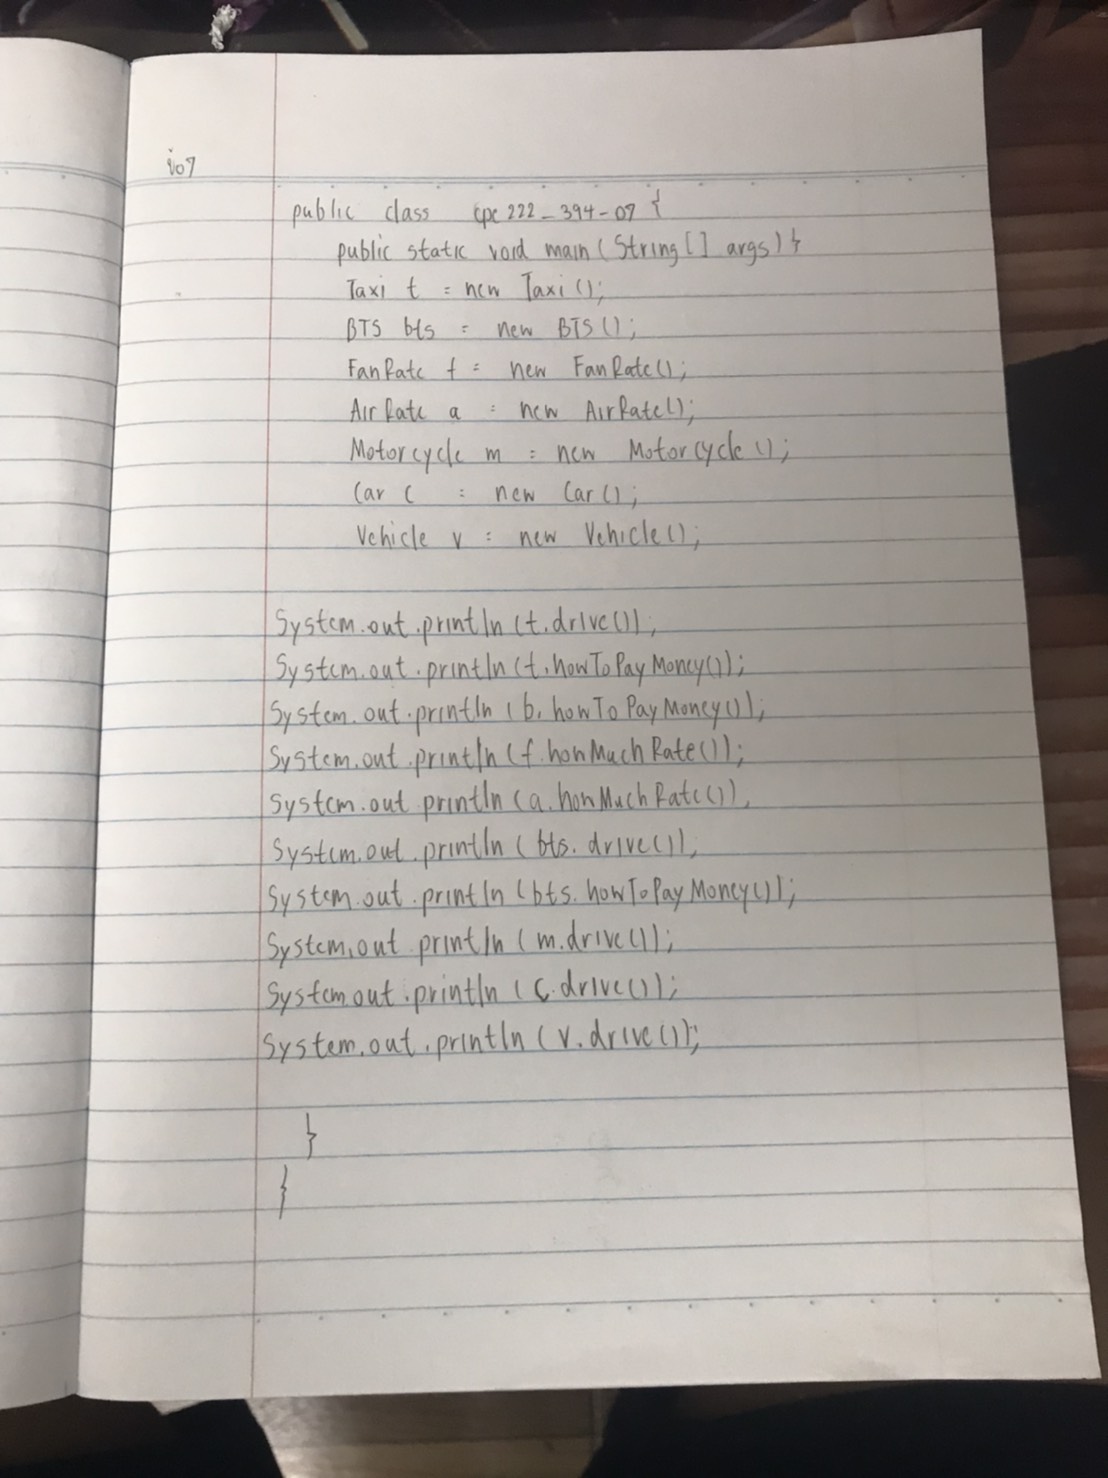 ข้อ7
public class cpc222_394-07 {
public static void main(String[] args) }
Taxi t = new Taxi();
BTS bts = new BTS();
FanRate f = new FanRate();
AirRate a = new AirRate();
Motorcycle m = new Motorcycle();
Car c = new Car();
Vehicle v = new Vehicle();
System.out.println(t.drive());
System.out.println(t.howToPayMoney());
System.out.println(b.howToPayMoney());
System.out.println(f.howMuchRate());
System.out println(a.howMuchRate()),
System.out.println(bts.drive()),
System.out.println(bts.howToPayMoney());
System.out println(m.drive());
System out.println(c.drive());
System.out.println(v.drive());
}
}